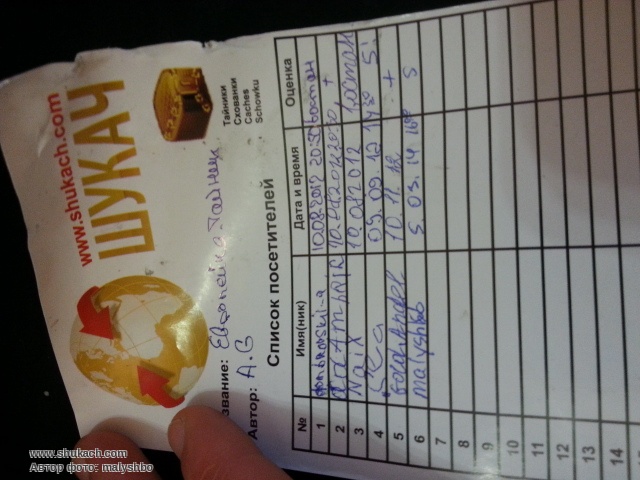 www.shukach.com
ШУКАЧ
Тайники
Схованки
Caches
Schowku
звание: Европейка-Тайник
Автор: А.С
Список посетителей
№ Имя(ник) Дата и время Оценка
1 10.08.2012 20:50
2 +
3 NaiX 10.08.2012
4 09.09.12 5
5 10.11.12 +
6 malyshbo 5.03.14 5
7
8
9
10
11
12
13
14
www.shukach.com
Автор фото: malyshbo